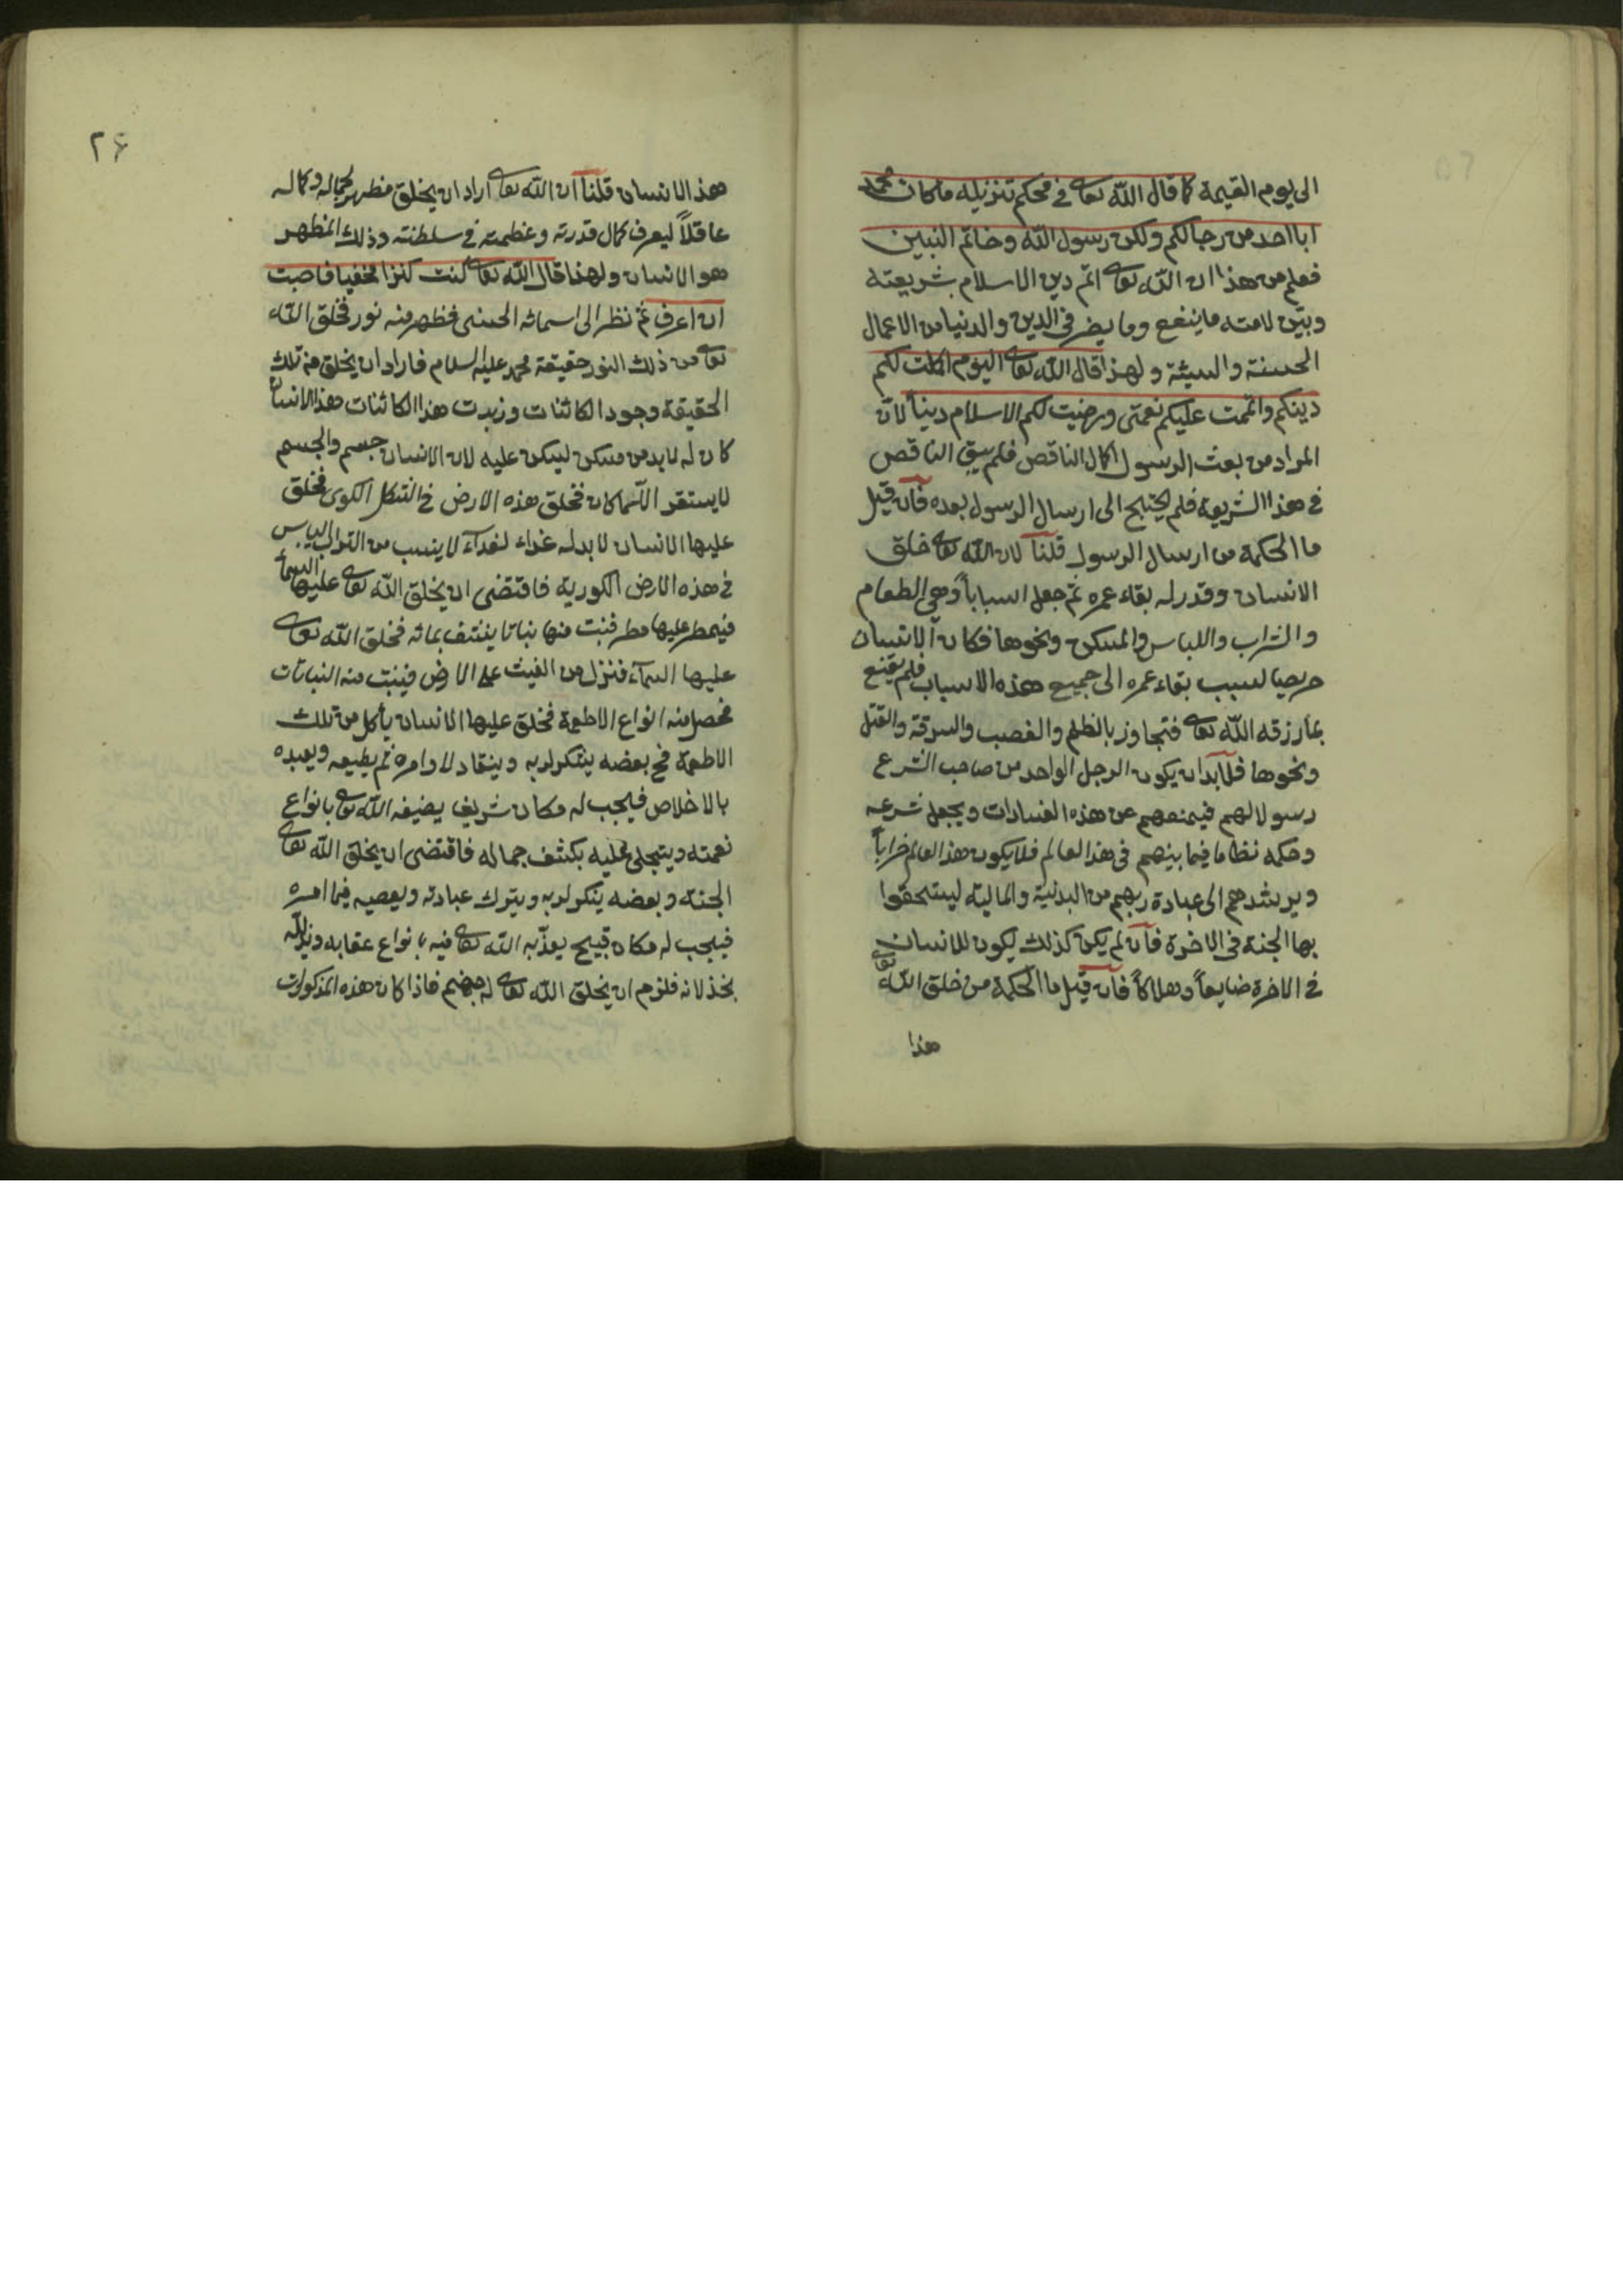 الى يوم القيمة كما قال الله تعالى فى محكم تنزيله ماكان محمد
ابا احد من رجالكم ولكن رسول الله وخاتم النبيين
فعلم من هذا ان الله تعالى اتم دين الاسلام بشريعته
وبيّن لامته ما ينفع وما يضر فى الدين والدنيا من الاعمال
الحسنة والسيئة ولهذا قال الله تعالى اليوم اكملت لكم
دينكم واتممت عليكم نعمتى ورضيت لكم الاسلام ديناً لانّ
المراد من بعث الرسول اكمال الناقص فلم يبق الناقص
فى هذا الشريعة فلم يحتج الى ارسال الرسول بعده فان قيل
ما الحكمة من ارسال الرسول قلنا لان الله تعالى خلق
الانسان وقدر له بقاء عمره ثم جعل اسباباً وهى الطعام
والشراب واللباس والمسكن ونحوها فكان الانسان
حريصا لسبب بقاء عمره الى جميع هذه الاسباب فلم يقنع
بما رزقه الله تعالى فتجاوز بالظلم والغصب والسرقة والقتل
ونحوها فلابد ان يكون الرجل الواحد من صاحب الشرع
رسولا لهم فيمنعهم عن هذه الفسادات ويجعل شرعه
وحكمه نظاما فيما بينهم فى هذا العالم فلا يكون هذا العالم خراباً
ويرشدهم الى عبادة ربهم من البدنية والمالية ليستحقوا
بها الجنة فى الاخرة فان لم يكن كذلك يكون للانسان
فى الاخرة ضايعاً وهلاكاً فان قيل ما الحكمة من خلق الله تعالى
هذا
٢۶
هذ الانسان قلنا ان الله تعالى اراد ان يخلق مظهر لجماله وكماله
عاقلاً ليعرف كمال قدرته وعظمته فى سلطنته وذلك المظهر
هو الانسان ولهذا قال الله تعالى كنت كنزا مخفيا فاحببت
ان اعرف ثم نظر الى اسمائه الحسنى فظهر منه نور فخلق الله
تعالى من ذلك النور حقيقة محمد عليه السلام فاراد ان يخلق من تلك
الحقيقة وجود الكائنات وزبدت هذا الكائنات هذا الانسان
كان له لابد من مسكن ليسكن عليه لان الانسان جسم والجسم
لا يستقر الا بمكان فخلق هذه الارض فى الشكل الكوى فخلق
عليها الانسان لابد له غداء لغداء لا ينسب من التراب اليابس
فى هذه الارض الكورية فاقتضى ان يخلق الله تعالى عليها السماء
فيمطر عليها مطر فنبت منها نباتا ينشف بمائه فخلق الله تعالى
عليها السماء فنزل من الغيث على الارض فينبت منه النباتات
فحصل منه انواع الاطعمة فخلق عليها الانسان يأكل من تلك
الاطعمة فح بعضه يتشكر لربه وينقاد لاوامره ثم يطيعه ويعبده
بالاخلاص فيجب له مكان شريف يضيفه الله تعالى بانواع
نعمته ويتجلى عليه بكشف جماله فاقتضى ان يخلق الله تعالى
الجنة وبعضه يتكر لربه ويترك عبادته ويعصيه فيما امره
فيجب له مكان قبيح يعذّبه الله تعالى فيه بانواع عقابه ويذلله
بخذلانه فلزم ان يخلق الله تعالى له جهنم فاذا كان هذه المذكورات